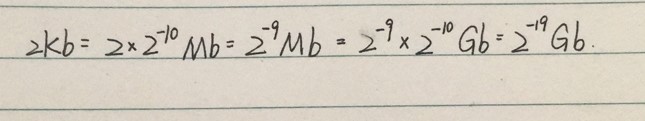 2Kb = 2×2⁻¹⁰ Mb = 2⁻⁹ Mb = 2⁻⁹ × 2⁻¹⁰ Gb = 2⁻¹⁹ Gb.